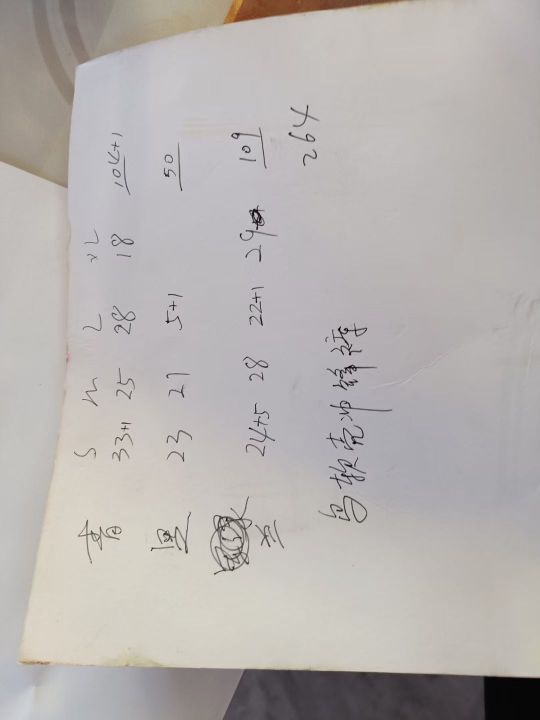 S M L XL
青 33+1 25 28 18 104+1
黑 23 21 5+1 50
灰 24+5 28 22+1 29 109
264
软壳冲锋裤